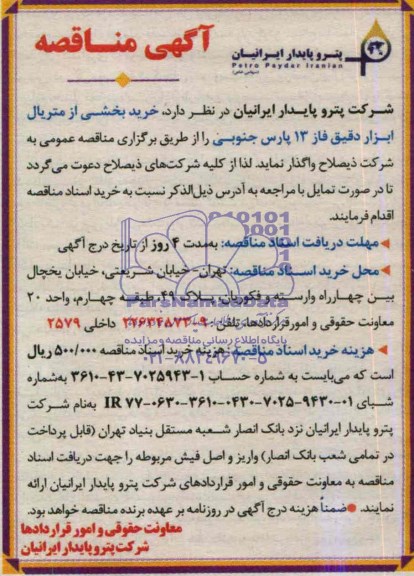 آگهی مناقصه
پترو پایدار ایرانیان
Petro Paydar Iranian
(سهامی خاص)
شرکت پترو پایدار ایرانیان در نظر دارد، خرید بخشی از متریال
ابزار دقیق فاز ۱۳ پارس جنوبی را از طریق برگزاری مناقصه عمومی به
شرکت ذیصلاح واگذار نماید. لذا از کلیه شرکت‌های ذیصلاح دعوت می‌گردد
تا در صورت تمایل با مراجعه به آدرس ذیل‌الذکر نسبت به خرید اسناد مناقصه
اقدام فرمایند.
مهلت دریافت اسناد مناقصه: به‌مدت ۴ روز از تاریخ درج آگهی
محل خرید اسناد مناقصه: تهران- خیابان شریعتی، خیابان یخچال
بین چهارراه وارسته و فکوریان، پلاک ۴۹، طبقه چهارم، واحد ۲۰
معاونت حقوقی و امور قراردادها، تلفن: ۹۰-۲۲۶۳۴۸۷۳ داخلی ۲۵۷۹
پایگاه اطلاع رسانی مناقصه و مزایده
هزینه خرید اسناد مناقصه: هزینه خرید اسناد مناقصه ۵۰۰/۰۰۰ ریال
۰۲۱-۸۸۳۴۹۶۷۰-۵
است که می‌بایست به شماره حساب ۱-۷۰۲۵۹۴۳-۴۳-۳۶۱۰ به‌شماره
شبای IR ۷۷-۰۶۳۰-۳۶۱۰-۰۴۳۰-۷۰۲۵-۹۴۳۰-۰۱ به‌نام شرکت
پترو پایدار ایرانیان نزد بانک انصار شعبه مستقل بنیاد تهران (قابل پرداخت
در تمامی شعب بانک انصار) واریز و اصل فیش مربوطه را جهت دریافت اسناد
مناقصه به معاونت حقوقی و امور قراردادهای شرکت پترو پایدار ایرانیان ارائه
نمایند. ضمناً هزینه درج آگهی در روزنامه بر عهده برنده مناقصه خواهد بود.
معاونت حقوقی و امور قراردادها
شرکت پترو پایدار ایرانیان